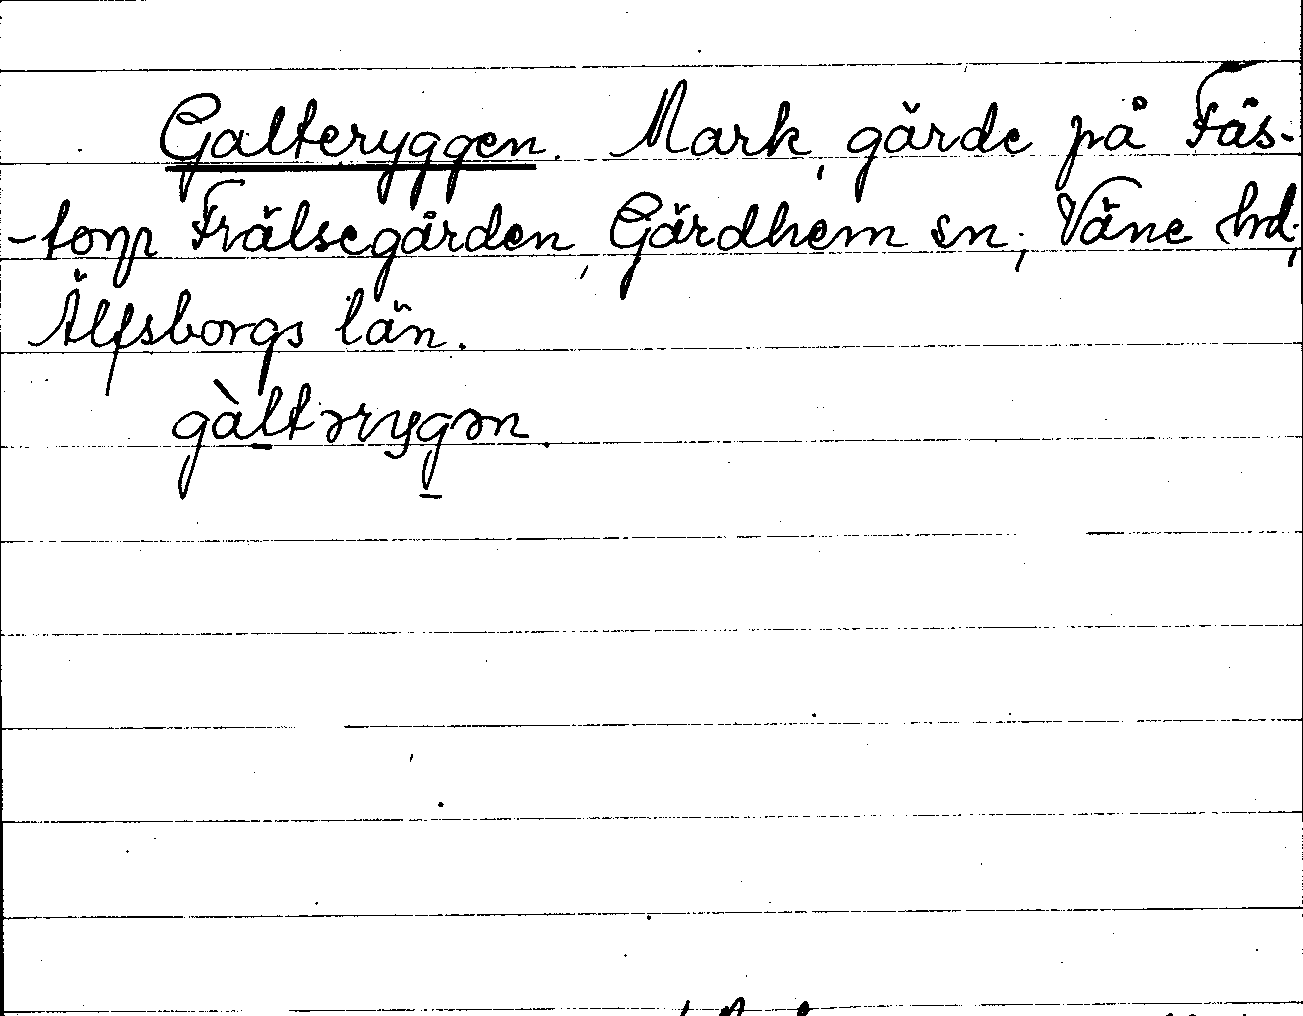 Galteryggen. Mark, gärde på Fäs-
-torp Frälsegården, Gärdhem sn, Väne hd,
Älfsborgs län.
gàltərygən.